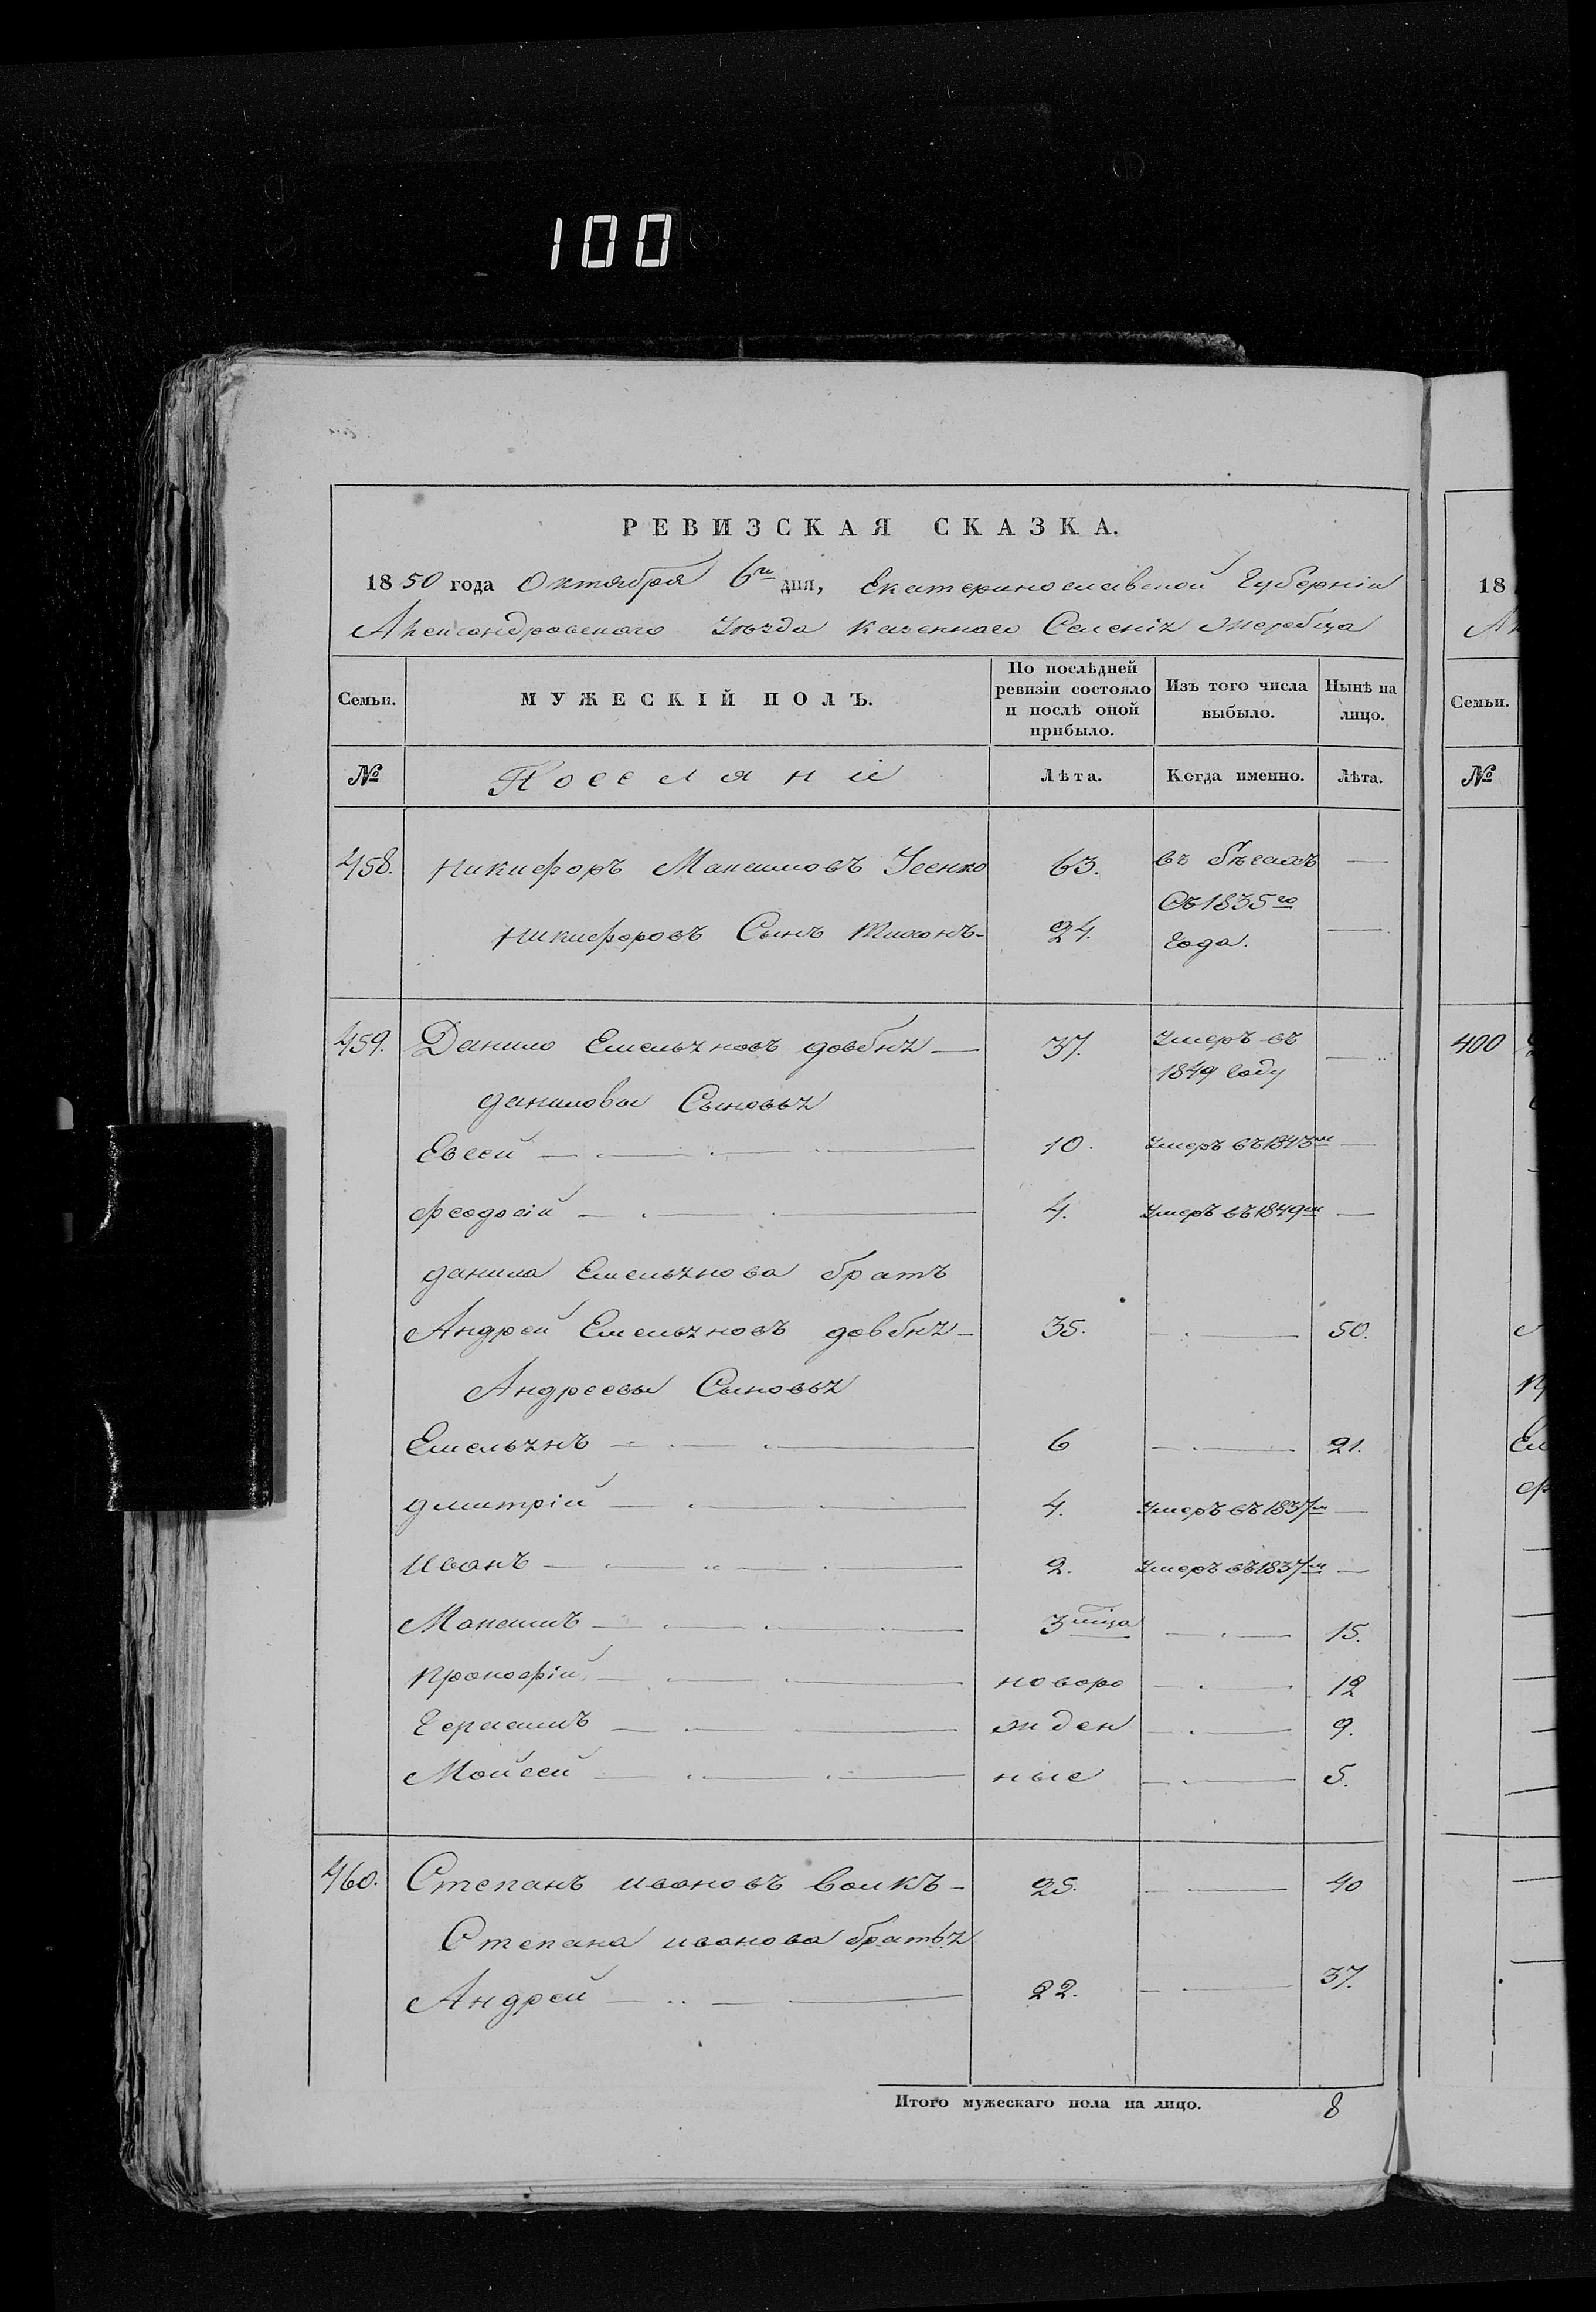 100
РЕВИЗСКАЯ СКАЗКА.
1850 года Октября 6го дня, Екатеринославской Губерніи
Александровскаго уѣзда казеннаго Селенія Жеребца
Семьи. МУЖЕСКІЙ ПОЛЪ. По послѣдней ревизіи состояло и послѣ оной прибыло. Изъ того числа выбыло. Нынѣ на лицо.
№ Поселяни Лѣта. Когда именно. Лѣта.
458. Никифоръ Максимовъ Усенко 63. въ бѣгахъ —
Никифоровъ Сынъ Тихонъ 24. Съ 1835го года. —
459. Данило Емельяновъ довбня 37. умеръ въ 1849 году —
даниловы Сыновья
Евсей 10. умеръ въ 1843м —
Феодосій 4. умеръ въ 1849м —
данила Емельянова братъ
Андрей Емельяновъ довбня 35. — 50.
Андреевы Сыновья
Емельянъ 6 — 21.
дмитрій 4. умеръ въ 1837м —
иванъ 2. умеръ въ 1837м —
Максимъ 3 мца — 15.
Прокофій новоро — 12
Герасимъ жден — 9.
Мойсей ные — 5.
460. Степанъ ивановъ Волкъ 25. — 40
Степана иванова братья
Андрей 22. — 37.
Итого мужескаго пола на лицо. 8
18
Семьи.
№
400